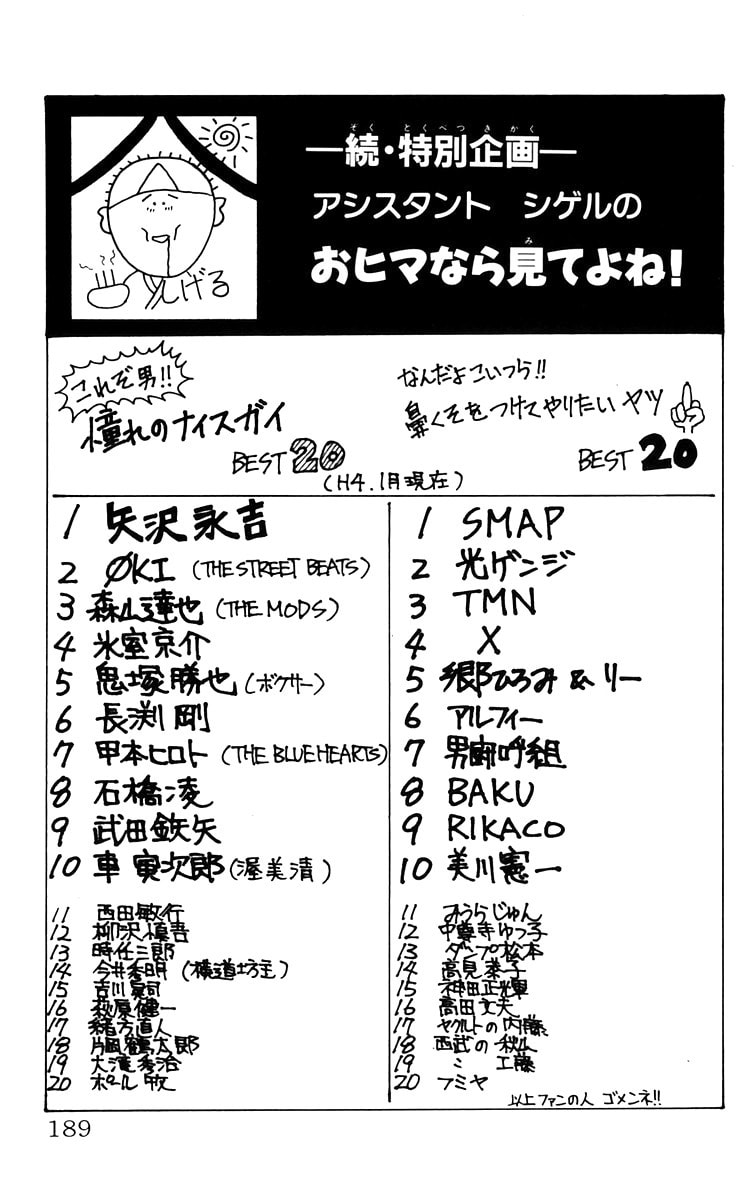 ―続・特別企画―
ぞく とくべつきかく
アシスタント シゲルの
おヒマなら見てよね!
み
しげる
これぞ男!!
憧れのナイスガイ
BEST 20
なんだよこいつら!!
鼻くそをつけてやりたいヤツ
BEST 20
(H4.1月現在)
1 矢沢永吉
2 ØKI (THE STREET BEATS)
3 森山達也 (THE MODS)
4 氷室京介
5 鬼塚勝也 (ボクサー)
6 長渕剛
7 甲本ヒロト (THE BLUE HEARTS)
8 石橋凌
9 武田鉄矢
10 車寅次郎 (渥美清)
11 西田敏行
12 柳沢慎吾
13 時任三郎
14 今井秀明 (横道坊主)
15 吉川晃司
16 萩原健一
17 緒方直人
18 片岡鶴太郎
19 大滝秀治
20 ポール牧
1 SMAP
2 光ゲンジ
3 TMN
4 X
5 郷ひろみ & リー
6 アルフィー
7 男闘呼組
8 BAKU
9 RIKACO
10 美川憲一
11 みうらじゅん
12 中尊寺ゆっ子
13 ダンプ松本
14 高見恭子
15 神田正輝
16 高田文夫
17 ヤクルトの内藤
18 西武の秋山
19 〃 工藤
20 フミヤ
以上ファンの人 ゴメンネ!!
189